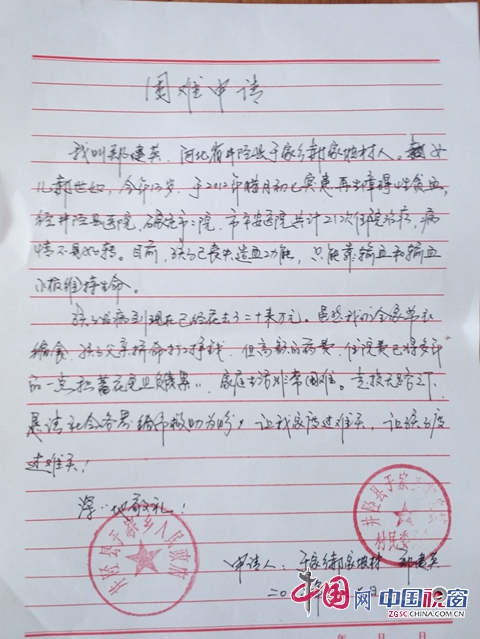 困难申请
我叫郑建英，河北省井陉县于家乡郝家坡村人。女
儿郝世如，今年13岁，于2012年腊月初七突患再生障碍性贫血，
经井陉县医院，石家庄市二院，市平安医院共计212次住院治疗，病
情不见好转。目前，孩子已丧失造血功能，只能靠输血和输血
小板维持生命。
孩子发病到现在已经花去了二十来万元。虽然我们全家节衣
缩食，孩子父亲拼命打工挣钱，但高额的药费，住院费已将多年
的一点积蓄花完且负债累累，家庭生活非常困难。走投无路之下，
恳请社会各界 救助为盼，让我家度过难关，让孩子度
过难关！
深深地敬礼！
申请人：于家乡郝家坡村 郑建英
井陉县于家乡人民政府
井陉县于家乡
村民委
中国网 中国视窗
ZGSC.CHINA.COM.CN